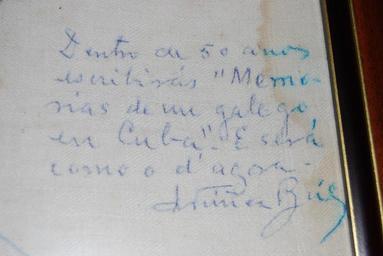 Dentro de 50 anos
escribirás "Memo-
rias de un galego
en Cuba". E será
como o d'agora.-
Núñez Búa